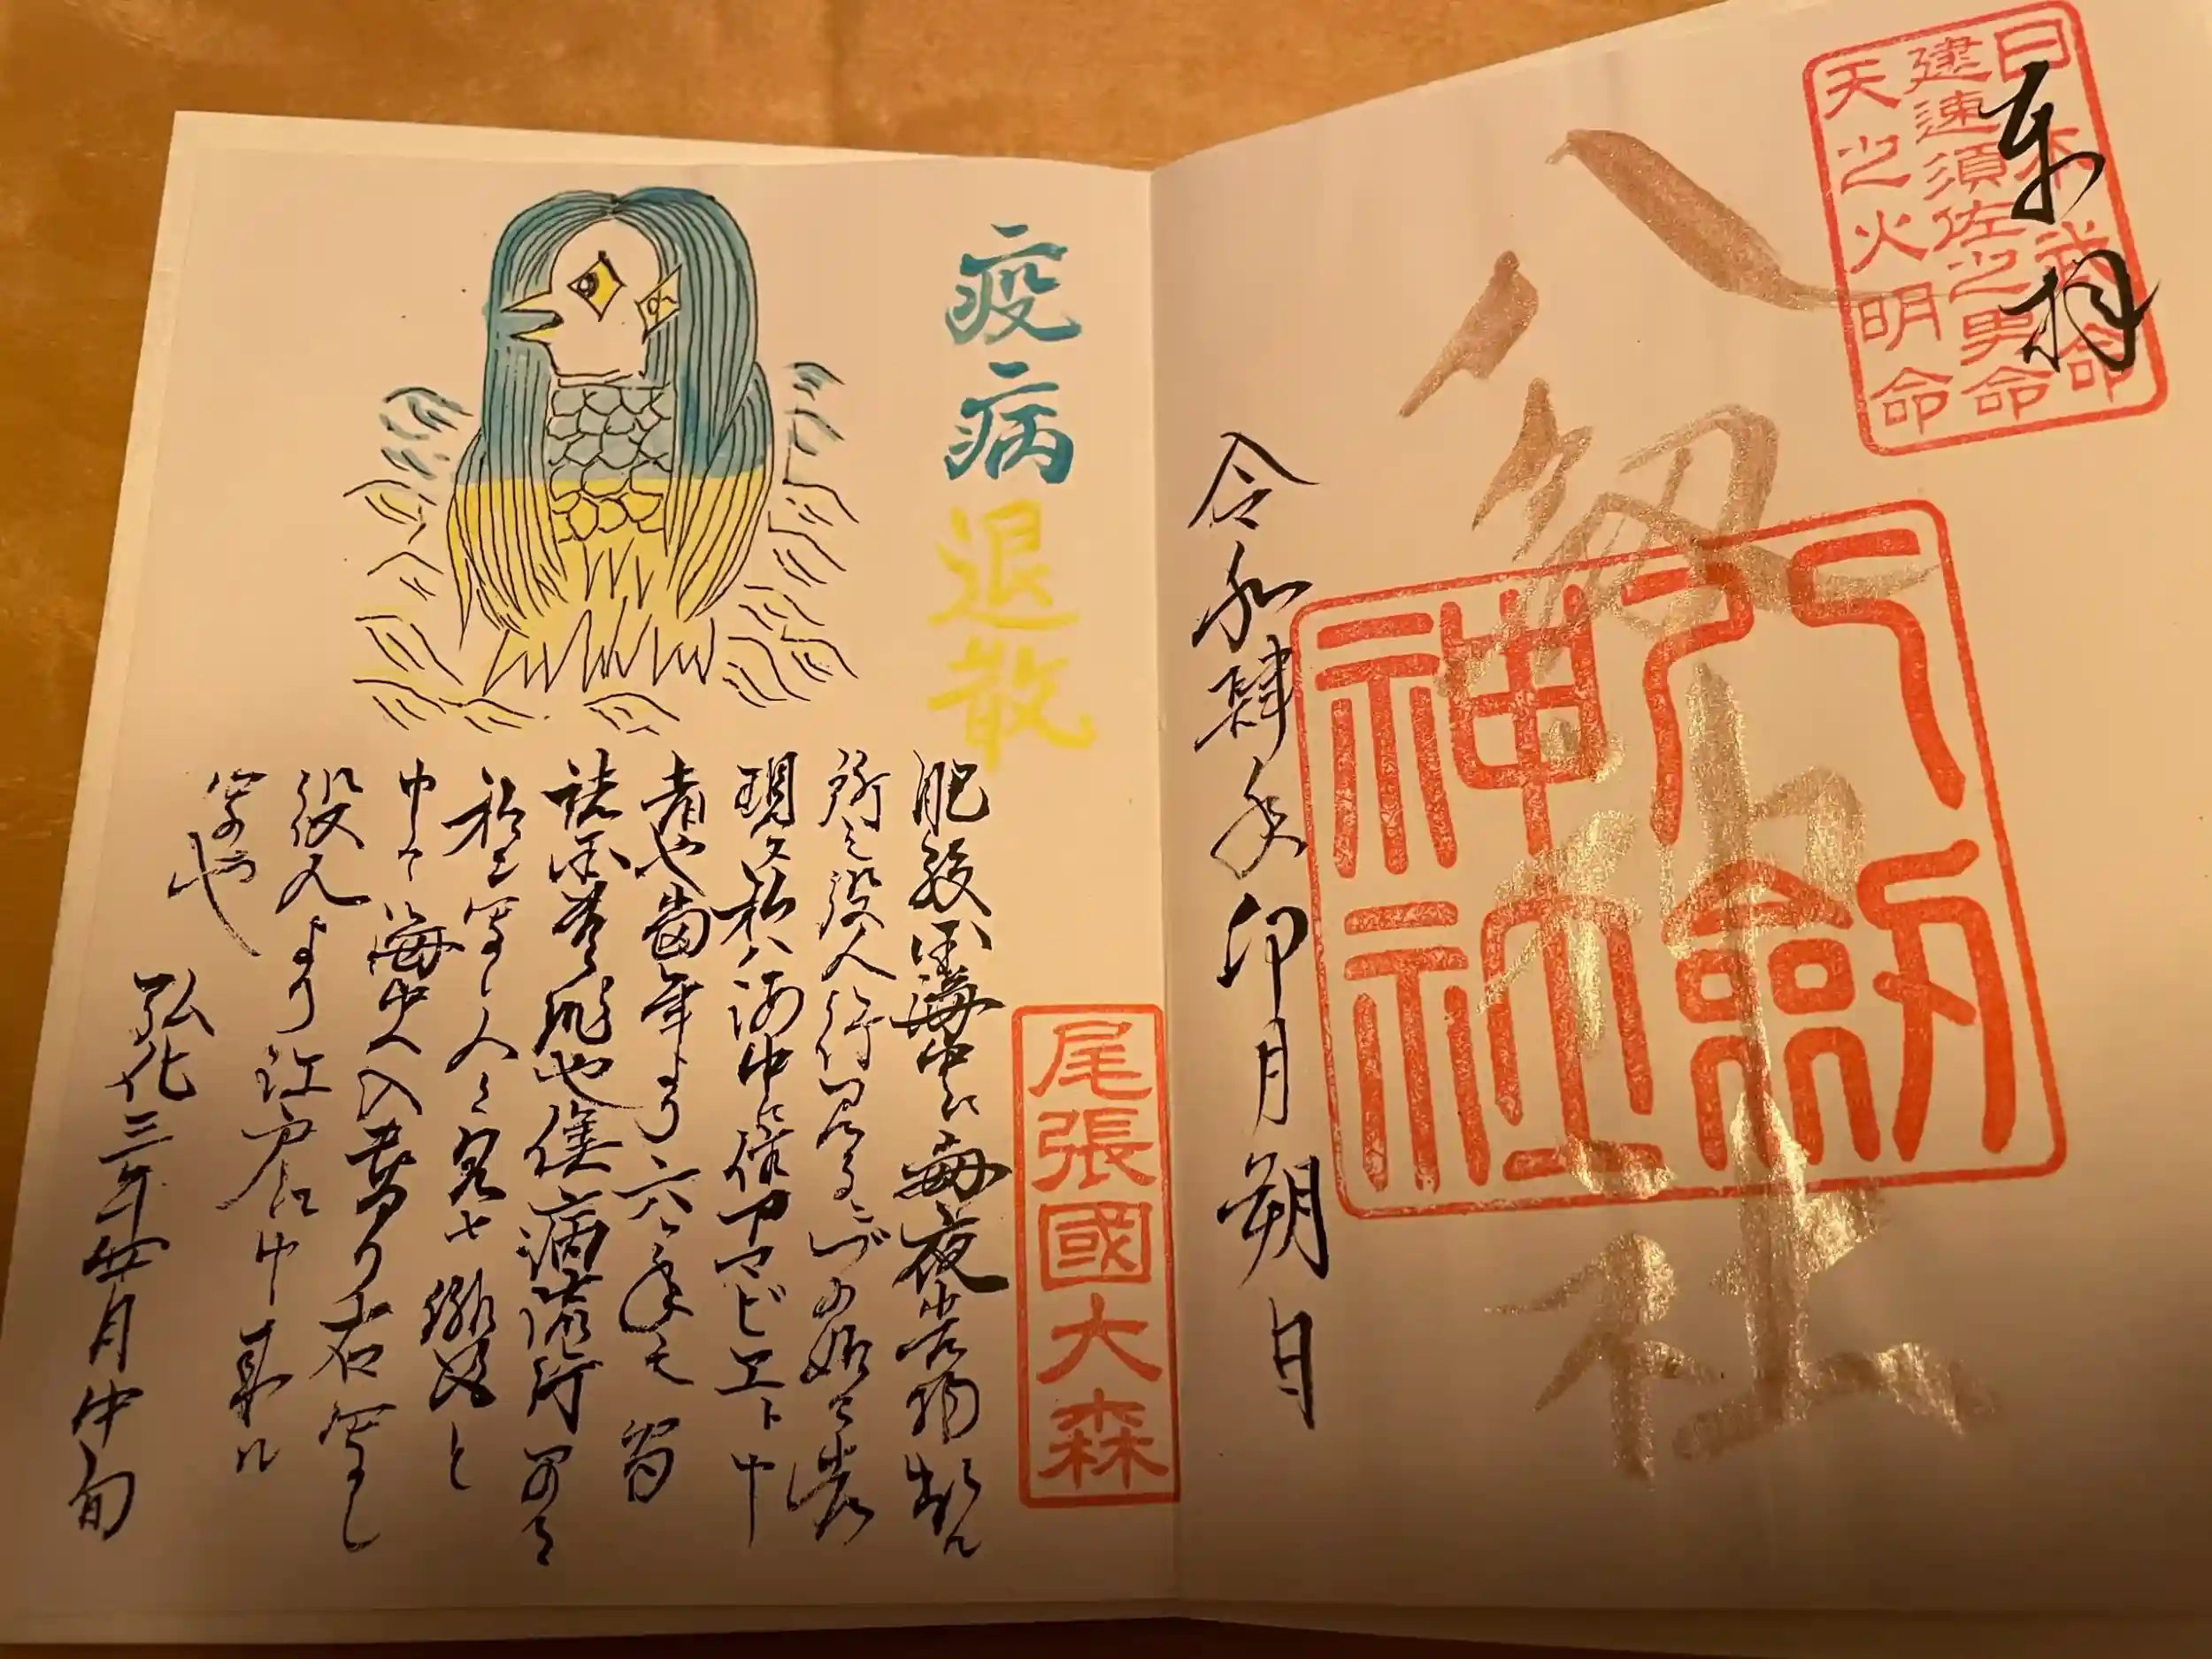 奉拝
日本武命
建速須佐之男命
天之火明命
八剱神社
八劔
神社
令和肆年卯月朔日
疫病退散
尾張國大森
肥後国海中え毎夜光物出ル
所之役人行見るニづの如く者
現ス私ハ海中ニ住アマビヱト申
者也當年より六ヶ年之間
諸国豊作也併病流行早々
私ヲ写シ人々ニ見セ候得と
申て海中へ入けり右写シ
役人より江戸え申来ル
写也
弘化三年四月中旬